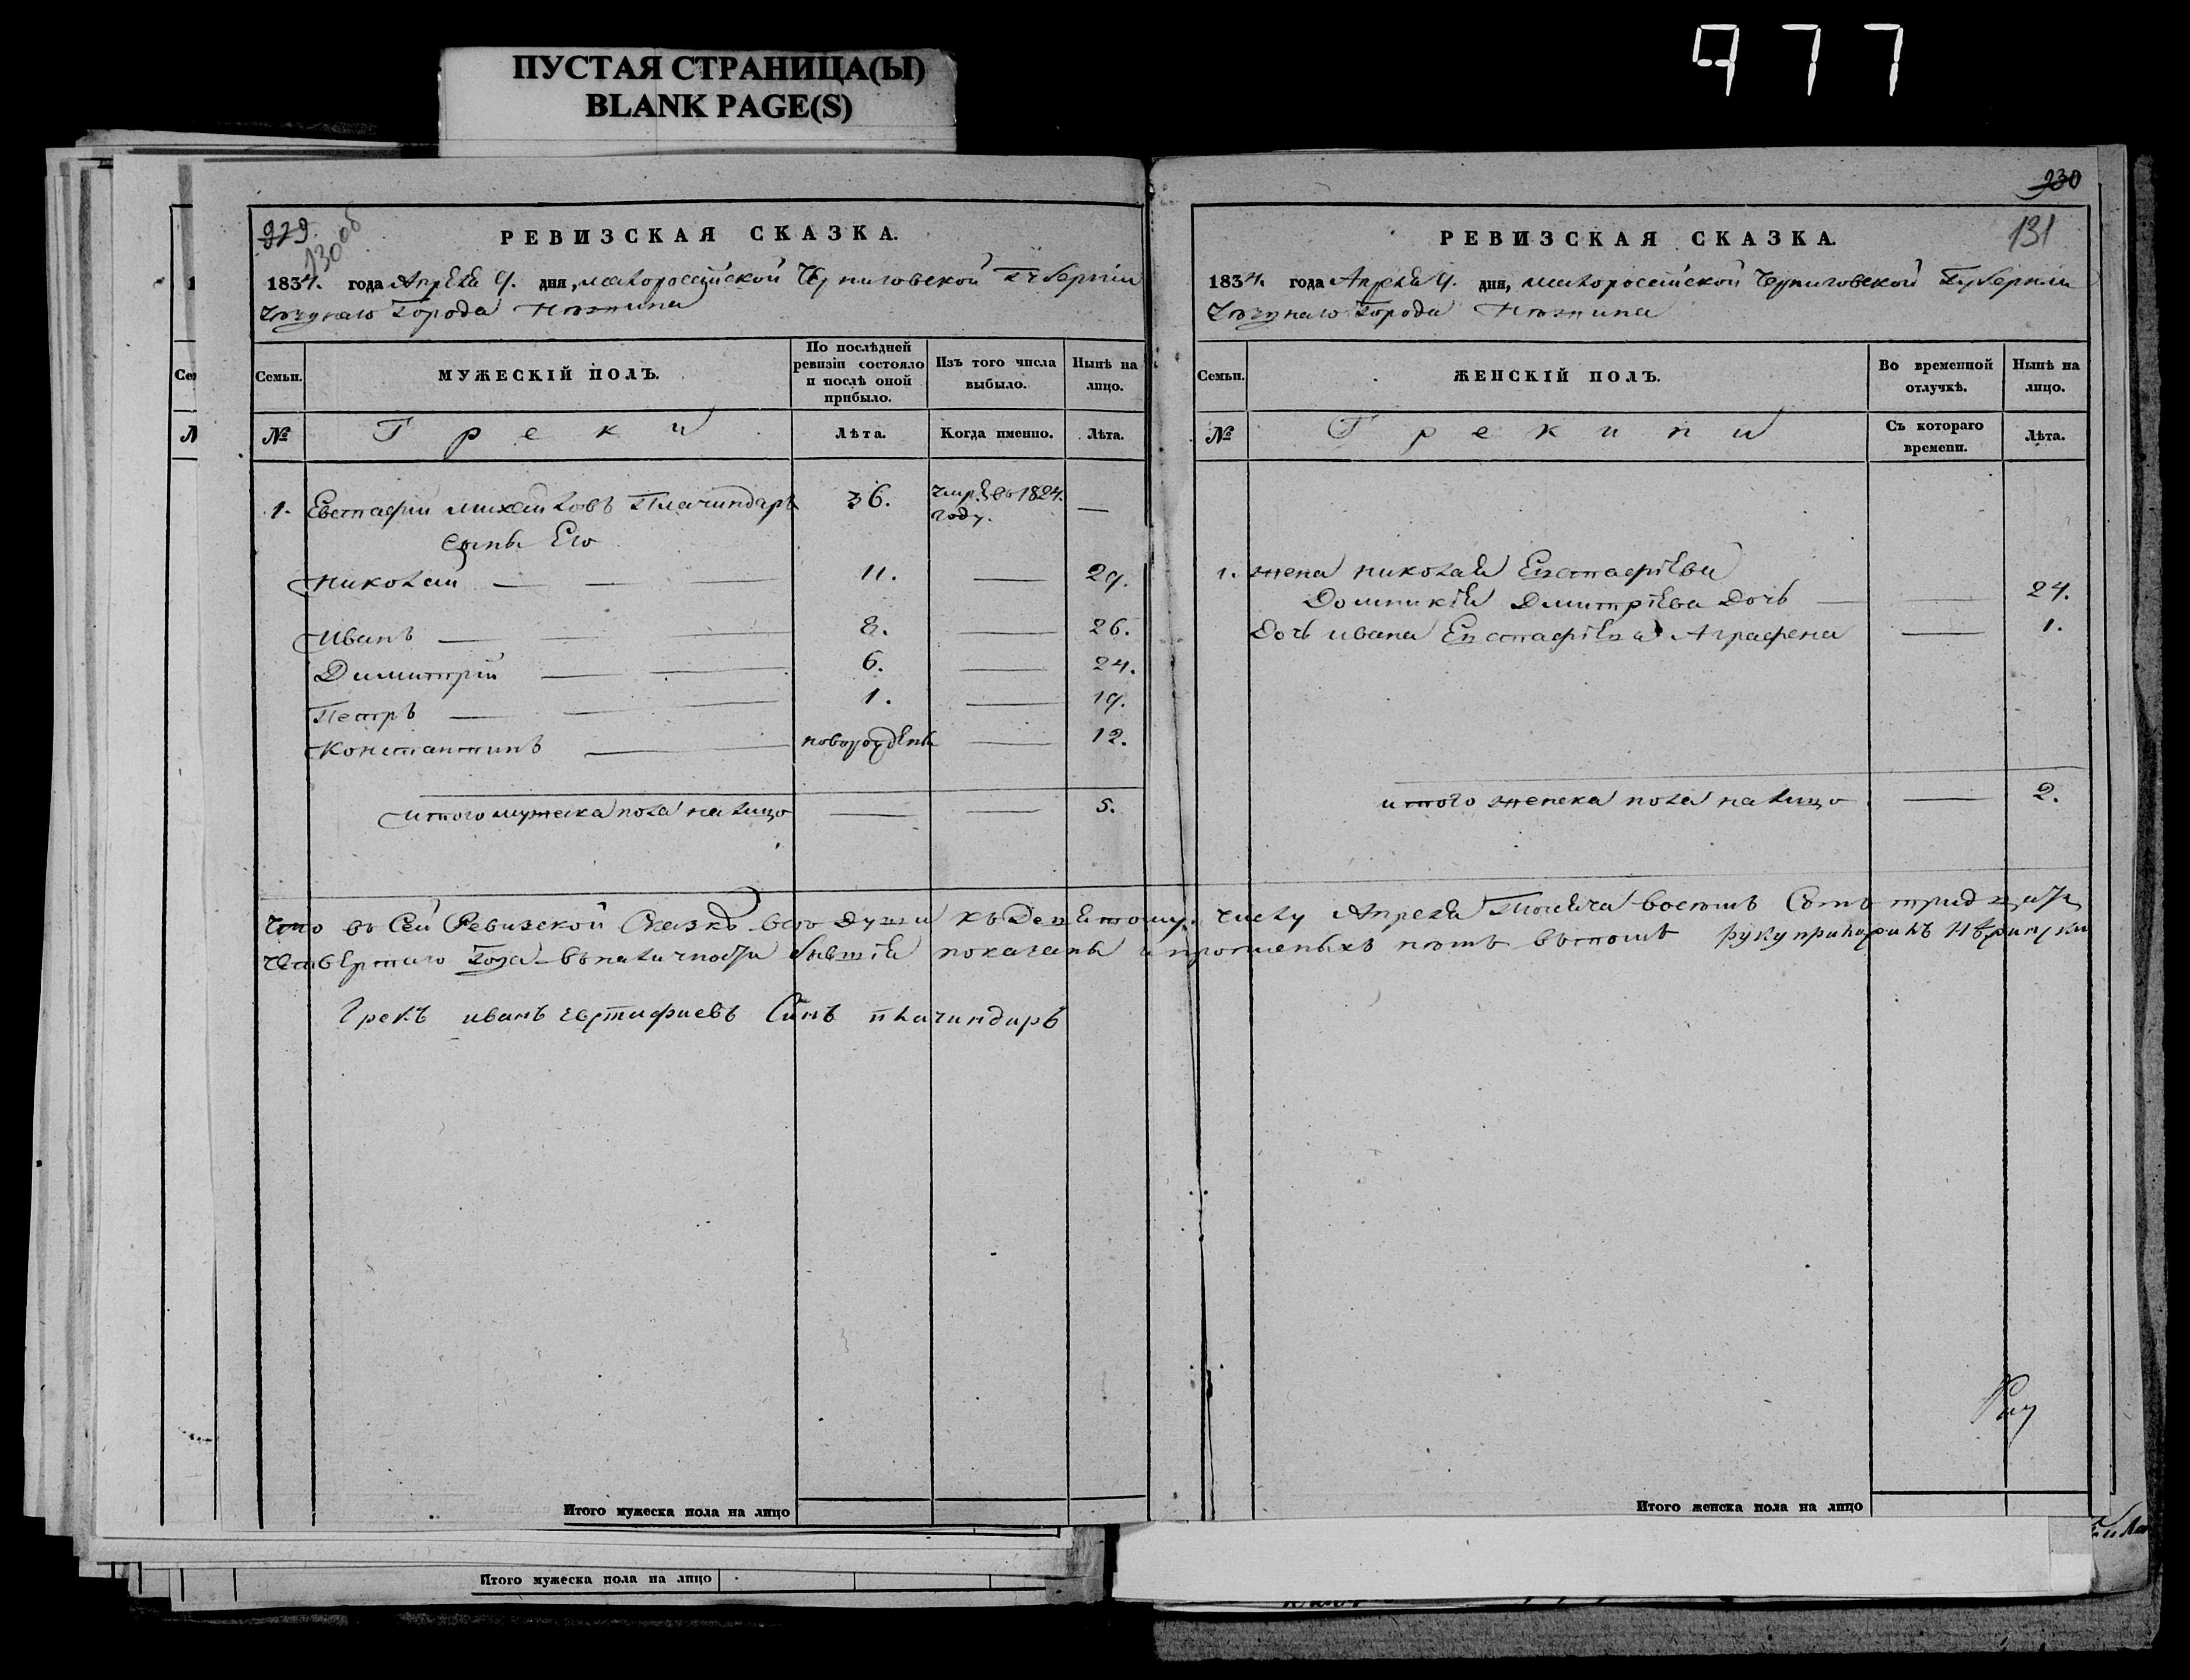 977
ПУСТАЯ СТРАНИЦА(Ы)
BLANK PAGE(S)
929.
130 об
РЕВИЗСКАЯ СКАЗКА.
1834. года Апреля 9. дня, малоросейской Черниговской Губернии
города Нежина
Семьи.
МУЖЕСКІЙ ПОЛЪ.
По послѣдней ревизіи состояло и послѣ оной прибыло.
Изъ того числа выбыло.
Нынѣ на лицо.
№
Греки
Лѣта.
Когда именно.
Лѣта.
1. Евстафий михайловъ Плачиндаръ 36. умре въ 1824. году. —
сыны Его
Николай — 11. — 29.
Иванъ — 8. — 26.
Димитрій — 6. — 24.
Петръ — 1. — 19.
Константинъ — новорожденъ — 12.
итого мужеска пола на лицо — — 5.
Итого мужеска пола на лицо
Итого мужеска пола на лицо
230
131
РЕВИЗСКАЯ СКАЗКА.
1834. года Апреля 9. дня, малоросейской Черниговской Губернии
города Нежина
Семьи.
ЖЕНСКІЙ ПОЛЪ.
Во временной отлучкѣ.
Нынѣ на лицо.
№
Грекини
Съ котораго времени.
Лѣта.
1. жена николая Евстафіева
Домникія Дмитріева Дочь — — 24.
Дочь ивана Евстафіева Аграфена — 1.
итого женска пола на лицо — 2.
Что въ Сей Ревизской Сказкѣ все души къ Девятому числу Апреля Тысяча восемь Сотъ тридцать
Четвертаго Года въ наличности бывшія показаны и прописныхъ нетъ въ томъ руку приложилъ Нѣжинскій
Грекъ иванъ евстафиевъ Синъ плачиндаръ
Итого женска пола на лицо